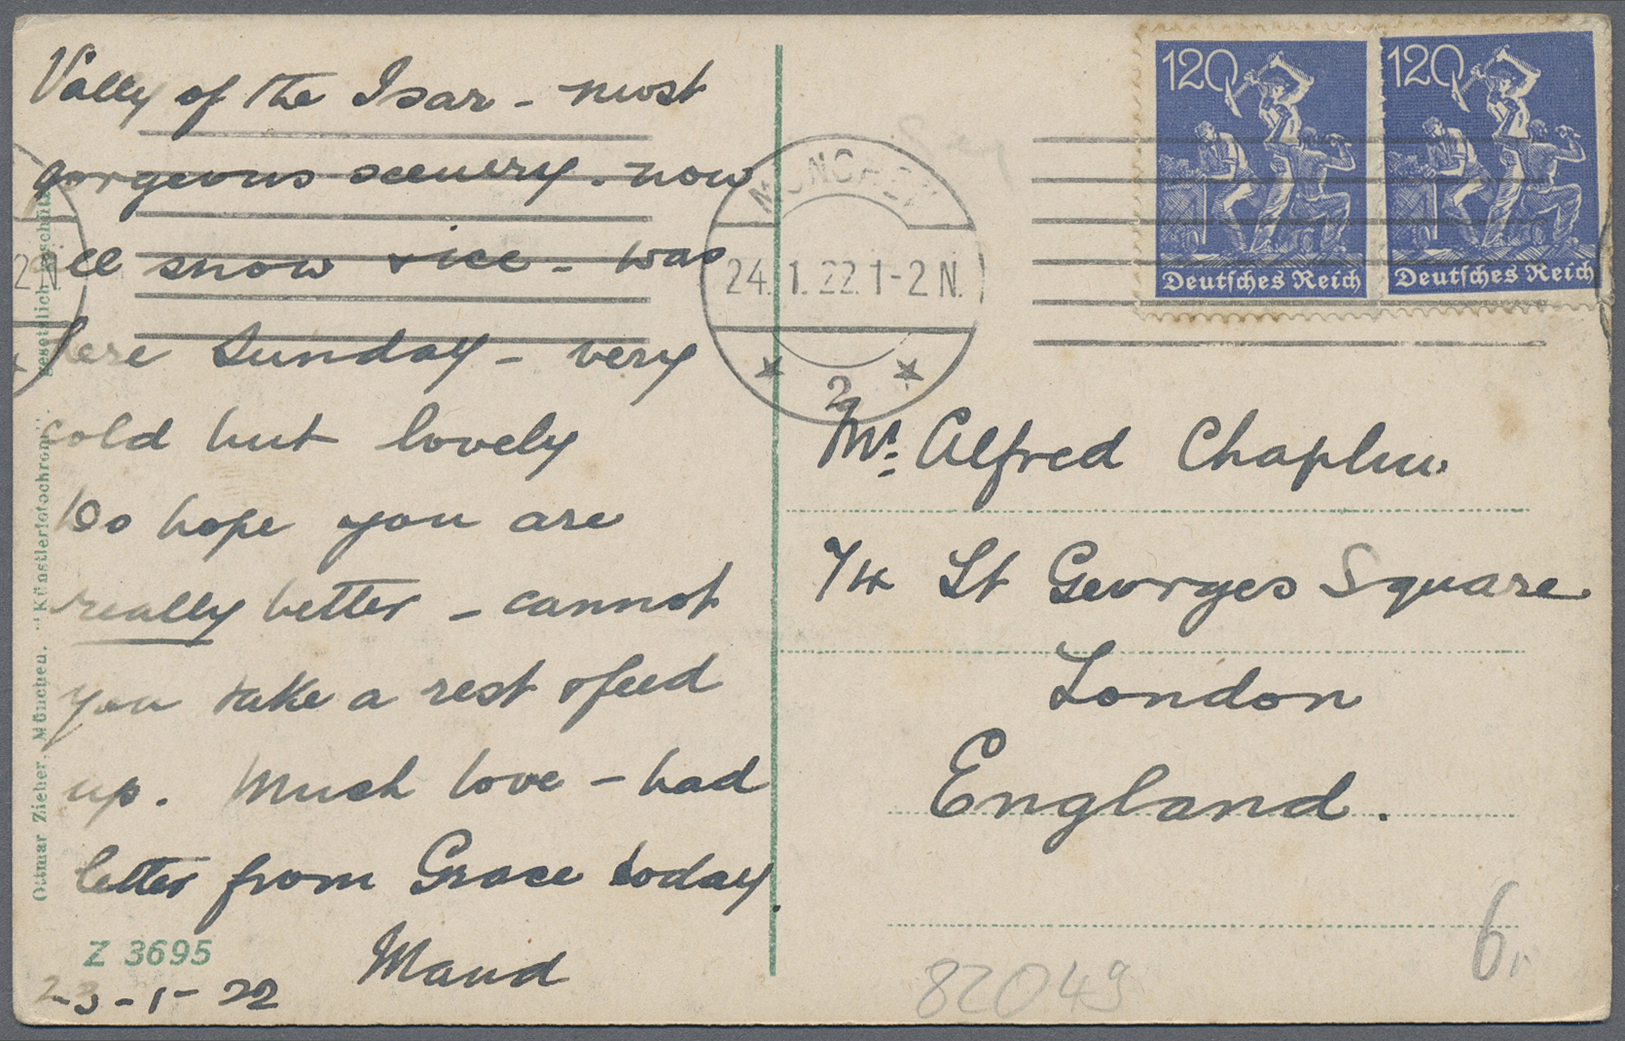 Vally of the Isar - most
gorgeous scenery. now
all snow & ice - was
here Sunday - very
cold but lovely
Do hope you are
really better - cannot
you take a rest & feed
up. Much love - had
letter from Grace today.
Maud
23-1-22
Z 3695
Ottmar Zieher, München. "Künstlerfotochrom". Gesetzlich geschützt
MÜNCHEN
24.1.22.1-2 N.
2
2 N.
120
Deutsches Reich
120
Deutsches Reich
Mr. Alfred Chaplin.
St Georges Square
London
England.
82049
6,